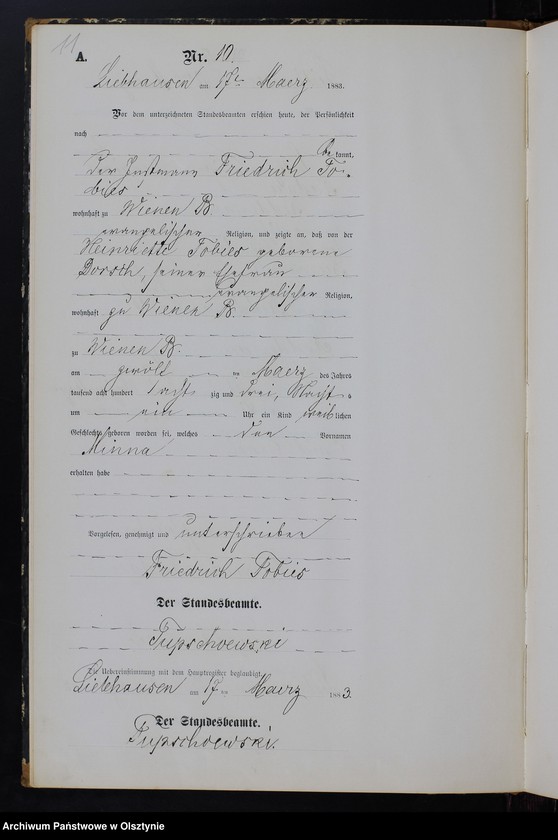 11
A. Nr. 10.
Liebhausen am 17ten Maerz 1883.
Vor dem unterzeichneten Standesbeamten erschien heute, der Persönlichkeit
nach
be kannt,
Der Instmann Friedrich To-
bies
wohnhaft zu Wienen B.
evangelischer Religion, und zeigte an, daß von der
Heinriette Tobies geborene
Dorsch, seiner Ehefrau
evangelischer Religion,
wohnhaft zu Wienen B.
zu Wienen B.
am zwölf ten Maerz des Jahres
tausend acht hundert acht zig und drei, Nachts
um ein Uhr ein Kind weib lichen
Geschlechts geboren worden sei, welches den Vornamen
Minna
erhalten habe
Vorgelesen, genehmigt und unterschrieben
Friedrich Tobies
Der Standesbeamte.
Die Uebereinstimmung mit dem Hauptregister beglaubigt.
Liebhausen am 17 ten Maerz 1883.
Der Standesbeamte.
Archiwum Państwowe w Olsztynie